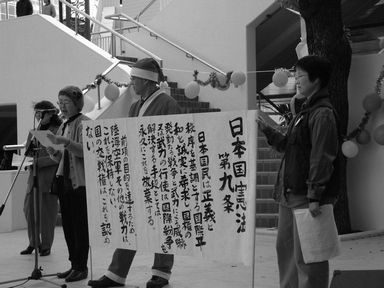 日本国憲法
第九条
日本国民は正義と
秩序を基調とする国際平
和を誠実に希求し国権の
発動たる戦争と武力による威嚇
又は武力の行使は国際紛争を
解決する手段としては
永久にこれを放棄する
前項の目的を達するため、
陸海空軍その他の戦力は、
これを保持しない。
国の交戦権はこれを認め
ない。